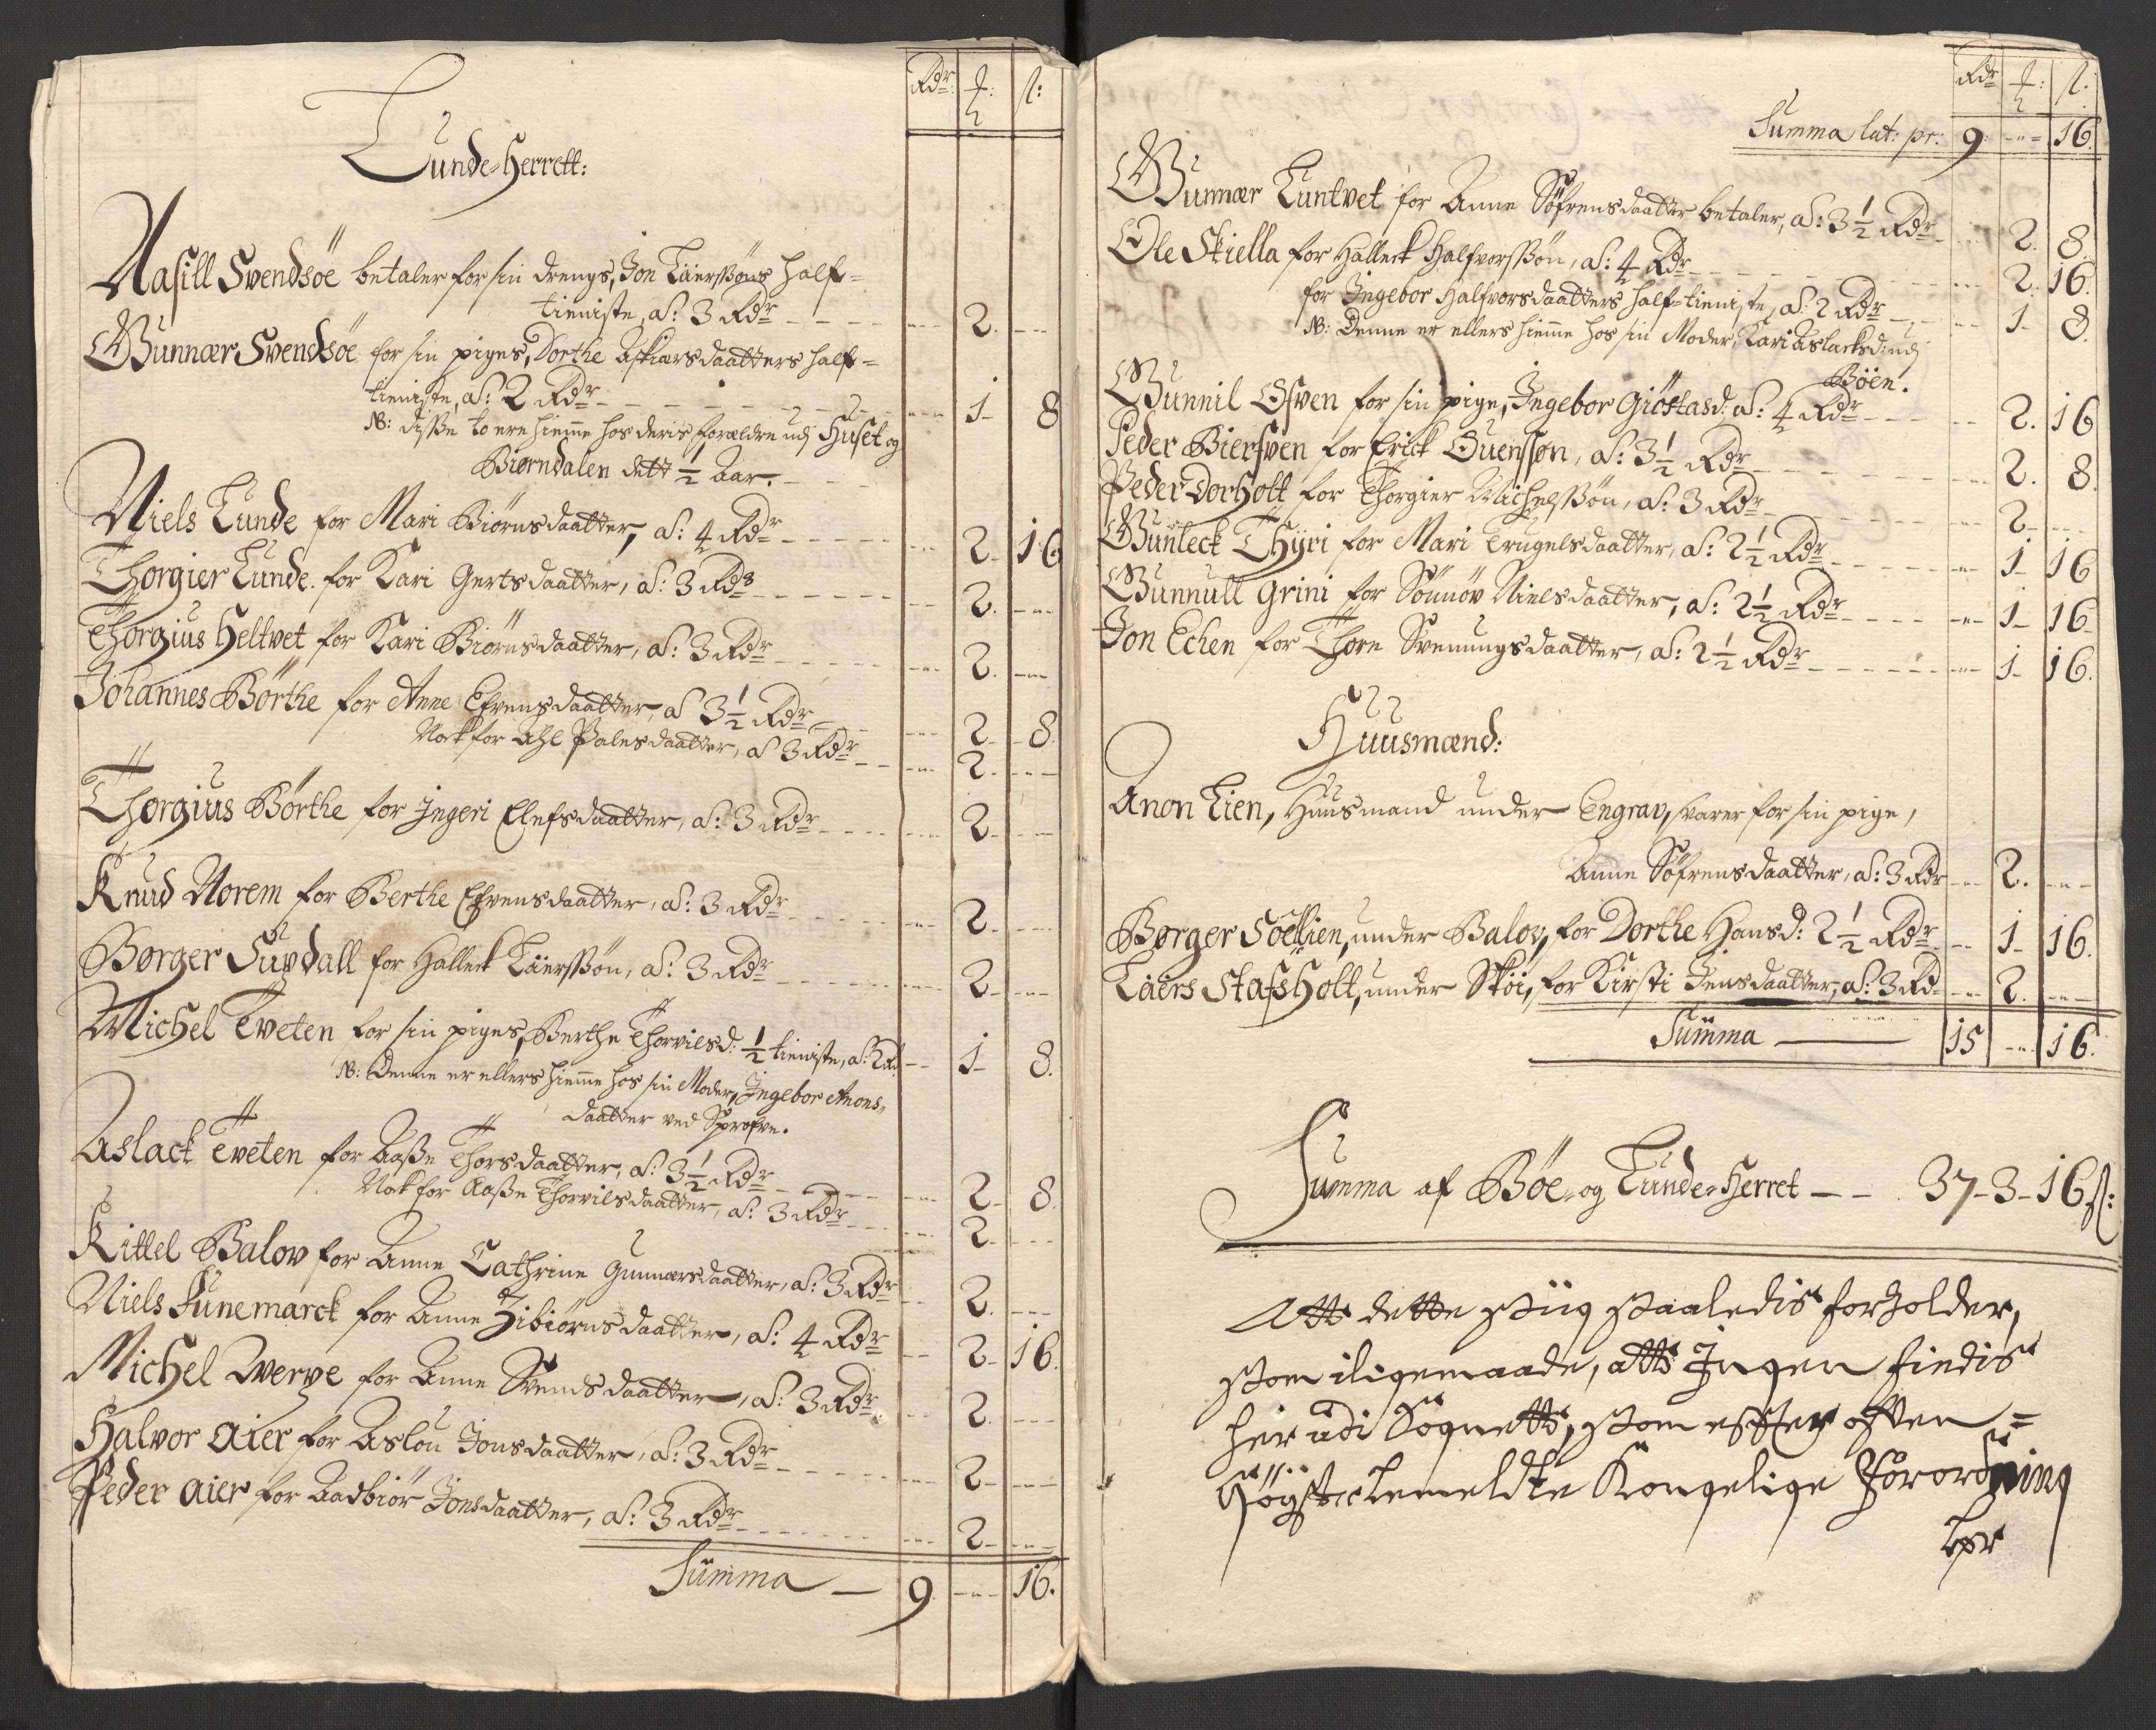 Rdr: ƒ: s:
Lunde-Herrett:
Aasill Svendsöe betaler for sin drengs, Jon Läerssøns half-
tieniste, als: 3 Rdr --- 2. ---
Gunnær Svendsöe for sin piges, Dorthe Askiærsdaatters half-
tieniste, als: 2 Rdr --- 1- 8
NB: disse to ere hiemme hos deris forældre udj Huset og
Biørndalen dett ½ Aar.
Niels Lunde for Mari Biörnsdaatter, als: 4 Rdr --- 2- 16
Thorgier Lunde for Kari Gertsdaatter, als: 3 Rdr --- 2. ---
Thorgius Heltvet for Kari Biörnsdaatter, als: 3 Rdr --- 2. ---
Johannes Börthe for Anne Efvensdaatter, als 3½ Rdr --- 2- 8.
Nock for Palesdaatter, als 3 Rdr --- 2- ---
Thorgius Börthe for Ingeri Elefsdaatter, als: 3 Rdr --- 2- ---
Knud Norem for Berthe Efvensdaatter, als: 3 Rdr --- 2- ---
Børger Suvdall for Halleck Läerssøn, als: 3 Rdr --- 2- ---
Michel Tveten for sin piges, Berthe Thorvilsd: ½ tieniste, als: 2 Rd --- 1- 8.
NB: Denne er ellers hiemme hos sin Moder, Ingebor Anons,
daatter ved Sprofve.
Aslack Tveten for Aasse Thorsdaatter, als: 3½ Rdr --- 2- 8.
Nok for Aasse Thorvilsdaatter, als: 3 Rdr --- 2- ---
Kittel Balov for Anne Cathrine Gunnærsdaatter, als: 3 Rdr --- 2. ---
Niels Junemarck for Anne Zibiörnsdaatter, als: 4 Rdr --- 2- 16.
Michel Werpe for Anne Svendsdaatter, als: 3 Rdr --- 2. ---
Halvor Aier for Aslou Jonsdaatter, als: 3 Rdr --- 2- ---
Peder Aier for Aadbiör Jonsdaatter, als: 3 Rdr --- 2- ---
Summa — 9. --- 16.
Rdr ƒ: s:
Summa lat: pr: 9. --- 16.
Gunnær Luntvet for Anne Söfrensdaatter betaler, als: 3½ Rdr --- 2. 8.
Ole Skiella for Halleck Halfvorssøn, als: 4 Rdr --- 2. 16.
for Ingebor Halfvorsdaatters half-tieniste, als: 2 Rdr --- 1- 8.
NB: Denne er ellers hiemme hos sin Moder, Kari Aslacksd: udj
Böen.
Gunnil Ofven for sin pige, Ingebor Giöstasd: als: 4 Rdr --- 2. 16
Peder Bierfven for Erick Ouenssøn, als: 3½ Rdr --- 2. 8.
Peder Dorholt for Thorgier Michelssøn, als: 3 Rdr --- 2- ---
Gunleck Thyri for Mari Trugelsdaatter, als: 2½ Rdr --- 1- 16
Gunnull Grini for Sönnöv Nielsdaatter, als: 2½ Rdr --- 1- 16-
Jon Echen for Thore Svenungsdaatter, als: 2½ Rdr --- 1- 16.
Huusmænd:
Anon Lien, Huusmand under Engrav, svarer for sin pige,
Anne Söfrensdaatter, als: 3 Rdr --- 2. ---
Børger under Balov, for Dorthe Hansd: 2½ Rdr --- 1- 16.
Laiers Stafsholt, under Sköi, for Kirsti Jensdaatter, als: 3 Rd --- 2. ---
Summa — 15 --- 16.
Summa af Böe- og Lunde-Herret — — 37-3-16 s:
Att dette sig saaledis forholder,
som iligemaade, att Ingen findis
her udi Sognett, som effter ofven=
Högst bemeldte Kongelige Forordning
bør